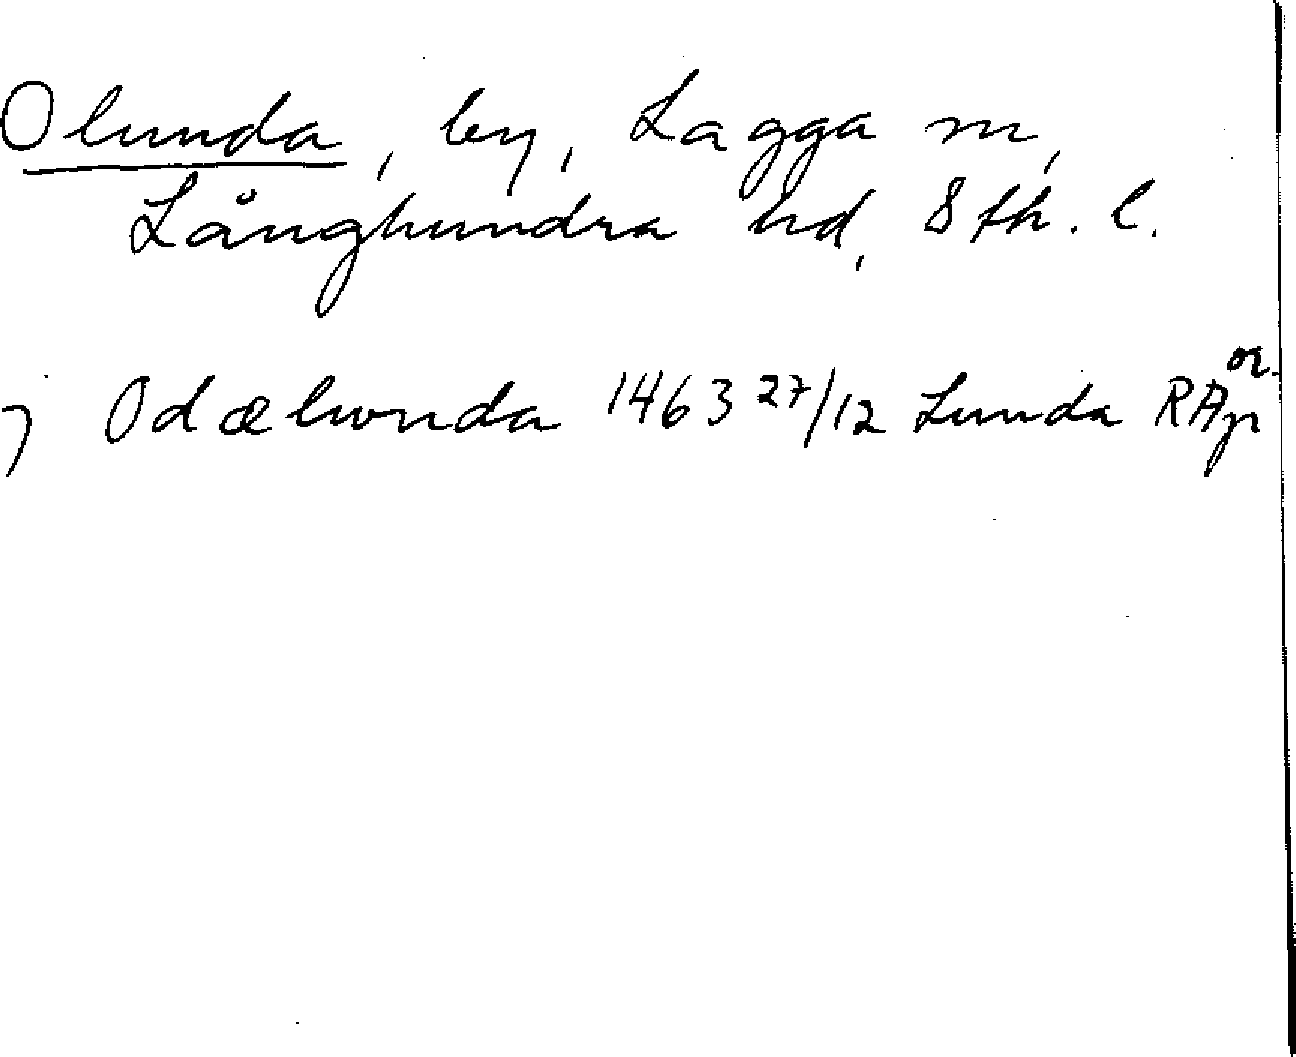 Olunda, by, Lagga sn,
Långhundra hd, Sth. l.
j Odælwnda 1463 27/12 Lunda RAp or.